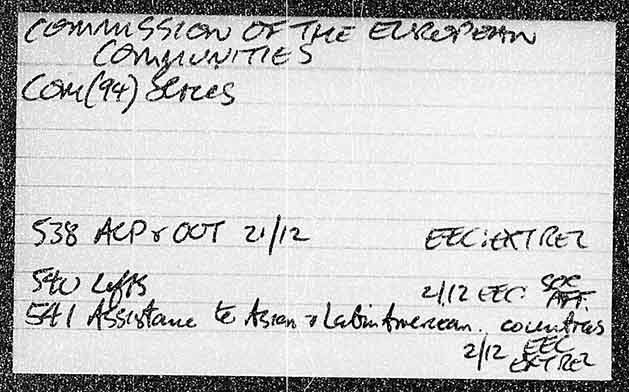 COMMISSION OF THE EUROPEAN
COMMUNITIES
COM(94) Series
538 ACP & OCT 21/12 EEC: EXT REL
540 Lifts 2/12 EEC: SOC AFF.
541 Assistance to Asian & Latin American countries
2/12 EEC EXT REL